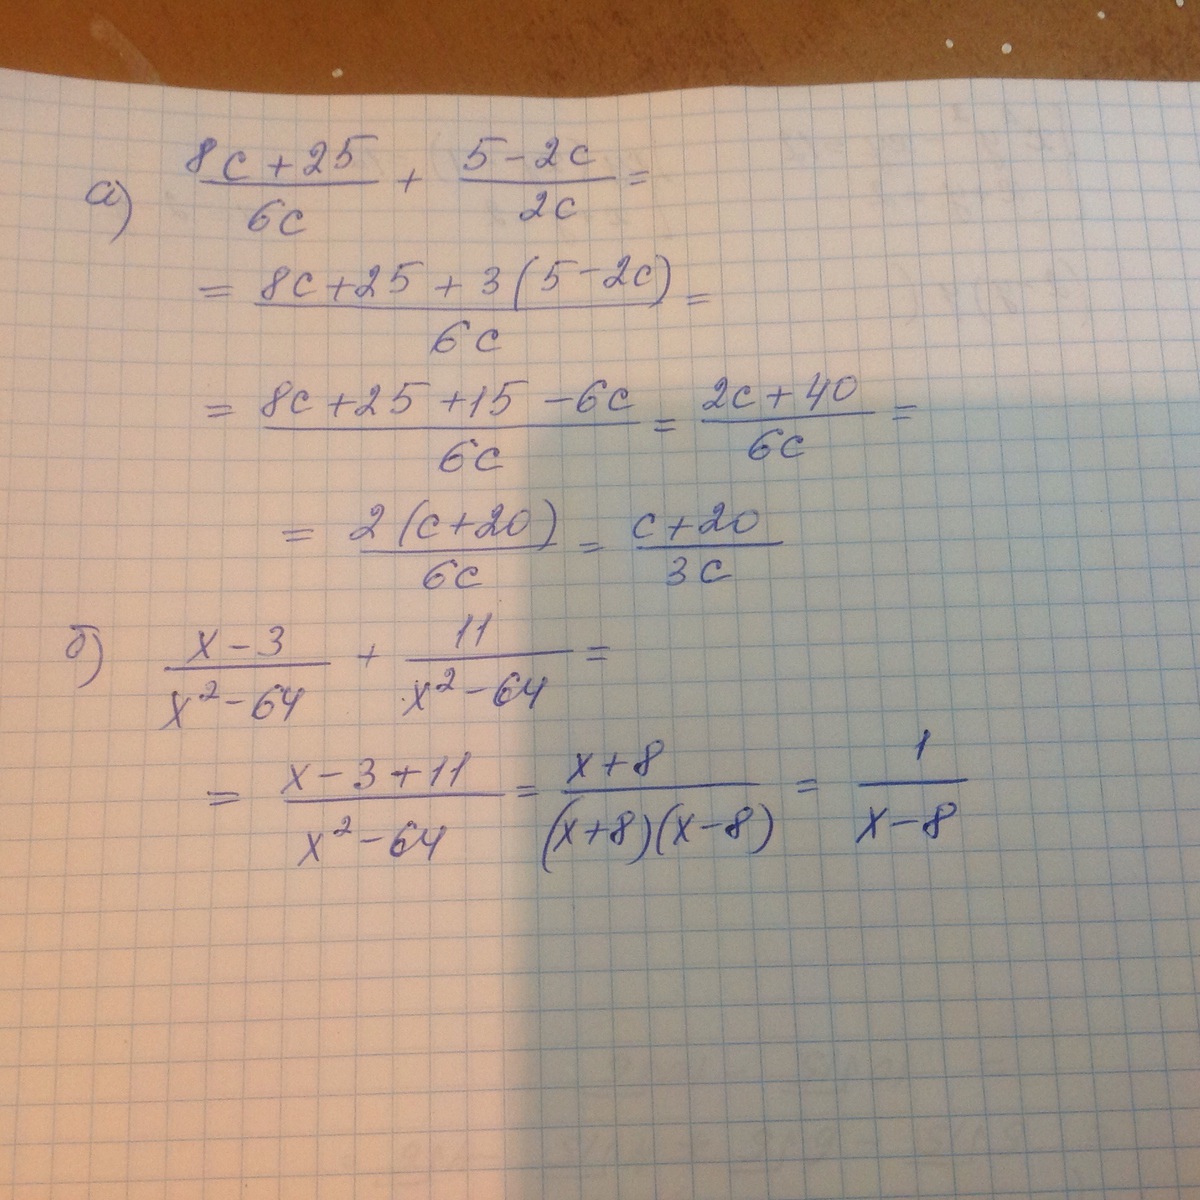 а) (8c+25)/(6c) + (5-2c)/(2c) =
= (8c+25+3(5-2c))/(6c) =
= (8c+25+15-6c)/(6c) = (2c+40)/(6c) =
= (2(c+20))/(6c) = (c+20)/(3c)
б) (x-3)/(x²-64) + 11/(x²-64) =
= (x-3+11)/(x²-64) = (x+8)/((x+8)(x-8)) = 1/(x-8)